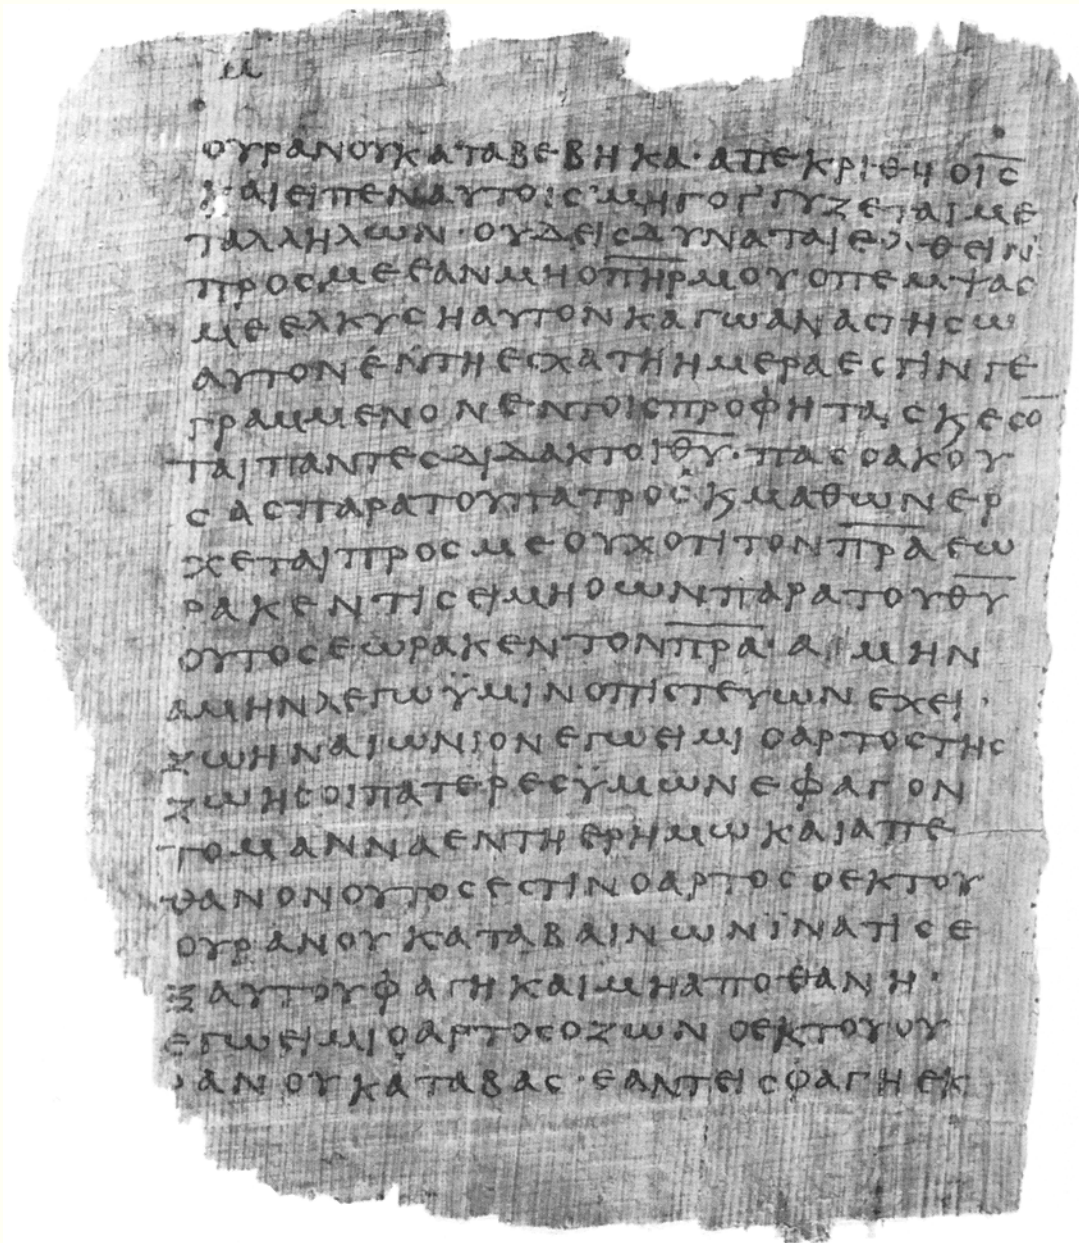 μ
ουρανουκαταβεβηκα· απεκριθηοις̅
καιειπεναυτοιςμηγογγυζεταιμε
ταλληλων· ουδειςδυναταιελθειν
προςμεεανμηοπ̅η̅ρ̅μουοπεμψας
μεελκυσηαυτονκαγωαναστησω
αυτονεντηεσχατηημεραεστινγε
γραμμενονεντοιςπροφηταιςκεσο̅
ταιπαντεςδιδακτοιθ̅υ̅· παςοακου
σαςπαρατουπατροςκμαθωνερ
χεταιπροςμεουχοτιτονπ̅ρ̅α̅εω
ρακεντιςειμηοωνπαρατουθ̅υ̅
ουτοςεωρακεντονπ̅ρ̅α̅· αμην
αμηνλεγωϋμινοπιστευωνεχει·
ζωηναιωνιονεγωειμιοαρτοςτης
ζωηςοιπατερεςϋμωνεφαγον
τομανναεντηερημωκαιαπε
θανονουτοςεστινοαρτοςοεκτου
ουρανουκαταβαινωνϊνατιςε
ξαυτουφαγηκαιμηαποθανη·
εγωειμιοαρτοςοζωνοεκτουου
ρανουκαταβας· εαντειςφαγηεκ